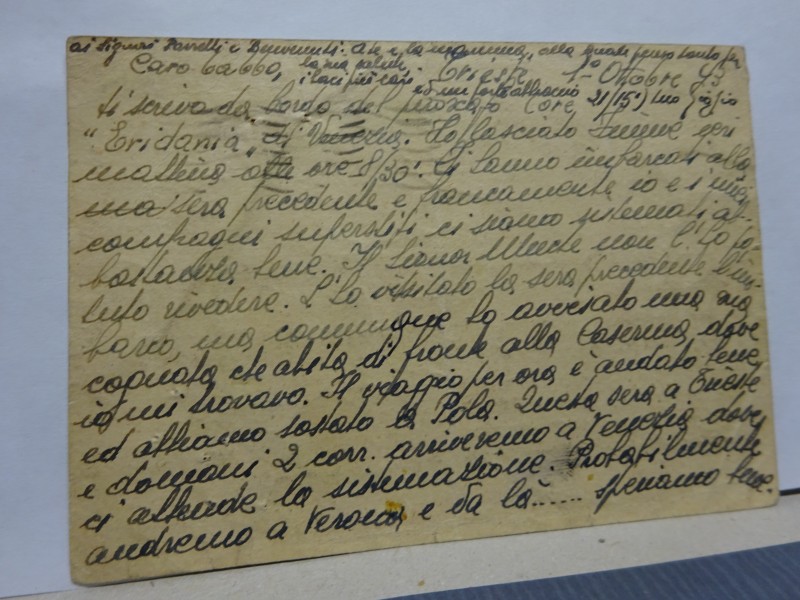 ai Signori e Benvenuti. A te e la mamma, alla quale penso tanto per
la mia salute,
Caro babbo, Trieste 1° Ottobre 43
i baci più cari ed un forte abbraccio tuo
(ore 21/15')
ti scrivo da bordo del piroscafo
"Eridania" di Venezia. Ho lasciato Fiume ieri
mattina alle ore 8/30'. Ci hanno imbarcati alla
sera precedente e francamente io e i miei
compagni superstiti ci siamo sistemati ab-
bastanza bene. Il Signor non l'ho po-
tuto rivedere. L'ho visitato la sera precedente l'im-
barco, ma comunque ho avvisato una sua
cognata che abita di fronte alla Caserma dove
io mi trovavo. Il viaggio per ora è andato bene
ed abbiamo sostato a Pola. Questa sera a Trieste
e domani 2 corr. arriveremo a Venezia dove
ci attende la sistemazione. Probabilmente
andremo a Verona e da là...... speriamo bene.